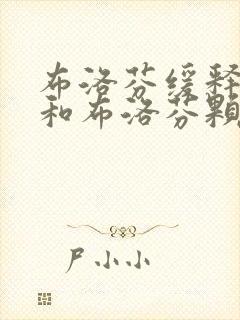 布洛芬缓释
和布洛芬颗
尸小小